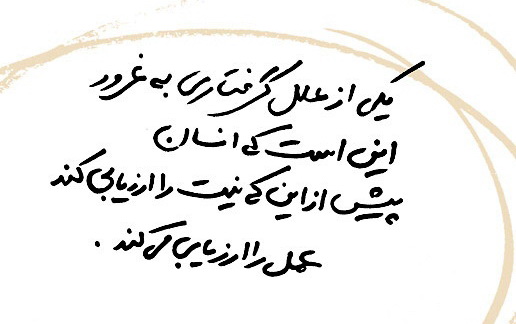 یکی از علل گرفتاری به غرور
این است که انسان
پیش از این که نیت را ارزیابی کند
عمل را ارزیابی می کند .